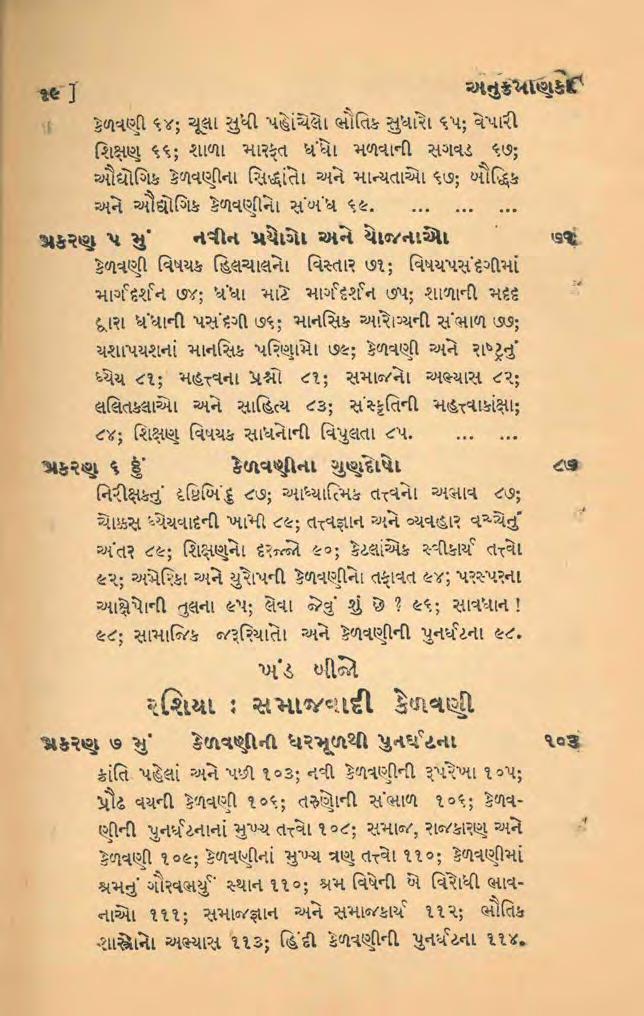 ૧૯ ]
અનુક્રમણિકા
કેળવણી ૬૪; ચૂલા સુધી પહોંચેલો ભૌતિક સુધારો ૬૫; વેપારી
શિક્ષણ ૬૬; શાળા મારફત ધંધો મળવાની સગવડ ૬૭;
ઔદ્યોગિક કેળવણીના સિદ્ધાંતો અને માન્યતાઓ ૬૭; બૌદ્ધિક
અને ઔદ્યોગિક કેળવણીનો સંબંધ ૬૯. ... ... ...
પ્રકરણ ૫ મું નવીન પ્રયોગો અને યોજનાઓ ૭૧
કેળવણી વિષયક હિલચાલનો વિસ્તાર ૭૧; વિષયપસંદગીમાં
માર્ગદર્શન ૭૪; ધંધા માટે માર્ગદર્શન ૭૫; શાળાની મદદ
દ્વારા ધંધાની પસંદગી ૭૬; માનસિક આરોગ્યની સંભાળ ૭૭;
યશાપયશનાં માનસિક પરિણામો ૭૯; કેળવણી અને રાષ્ટ્રનું
ધ્યેય ૮૧; મહત્ત્વના પ્રશ્નો ૮૧; સમાજનો અભ્યાસ ૮૨;
લલિતકલાઓ અને સાહિત્ય ૮૩; સંસ્કૃતિની મહત્ત્વાકાંક્ષા;
૮૪; શિક્ષણ વિષયક સાધનોની વિપુલતા ૮૫. ... ...
પ્રકરણ ૬ ઠ્ઠું કેળવણીના ગુણદોષો ૮૭
નિરીક્ષકનું દૃષ્ટિબિંદુ ૮૭; આધ્યાત્મિક તત્ત્વનો અભાવ ૮૭;
ચોક્કસ ધ્યેયવાદની ખામી ૮૯; તત્ત્વજ્ઞાન અને વ્યવહાર વચ્ચેનું
અંતર ૮૯; શિક્ષણનો દરજ્જો ૯૦; કેટલાંએક સ્વીકાર્ય તત્ત્વો
૯૨; અમેરિકા અને યુરોપની કેળવણીનો તફાવત ૯૪; પરસ્પરના
આક્ષેપોની તુલના ૯૫; લેવા જેવું શું છે ? ૯૬; સાવધાન !
૯૮; સામાજિક જરૂરિયાતો અને કેળવણીની પુનર્ઘટના ૯૮.
ખંડ બીજો
રશિયા : સમાજવાદી કેળવણી
પ્રકરણ ૭ મું કેળવણીની ધરમૂળથી પુનર્ઘટના ૧૦૩
ક્રાંતિ પહેલાં અને પછી ૧૦૩; નવી કેળવણીની રૂપરેખા ૧૦૫;
પ્રૌઢ વયની કેળવણી ૧૦૬; તરુણોની સંભાળ ૧૦૬; કેળવ-
ણીની પુનર્ઘટનાનાં મુખ્ય તત્ત્વો ૧૦૮; સમાજ, રાજકારણ અને
કેળવણી ૧૦૯; કેળવણીનાં મુખ્ય ત્રણ તત્ત્વો ૧૧૦; કેળવણીમાં
શ્રમનું ગૌરવભર્યું સ્થાન ૧૧૦; શ્રમ વિષેની બે વિરોધી ભાવ-
નાઓ ૧૧૧; સમાજજ્ઞાન અને સમાજકાર્ય ૧૧૨; ભૌતિક
શાસ્ત્રોનો અભ્યાસ ૧૧૩; હિંદી કેળવણીની પુનર્ઘટના ૧૧૪.